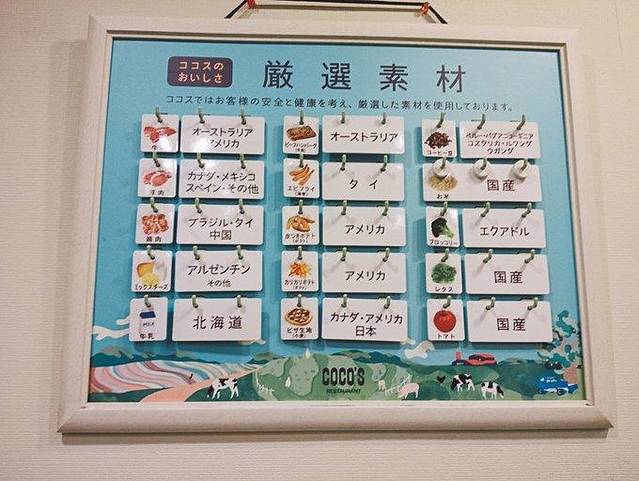 ココスの
おいしさ
厳選素材
ココスではお客様の安全と健康を考え、厳選した素材を使用しております。
オーストラリア
アメリカ
ビーフハンバーグ
(牛肉)
オーストラリア
コーヒー豆
ペルー・パプアニューギニア
コスタリカ・ルワンダ
ウガンダ
カナダ・メキシコ
スペイン・その他
エビフライ
タイ
お米
国産
鶏肉
ブラジル・タイ
中国
皮つきポテト
アメリカ
ブロッコリー
エクアドル
ミックスチーズ
アルゼンチン
その他
カリカリポテト
アメリカ
レタス
国産
MILK
牛乳
北海道
ピザ生地
(小麦)
カナダ・アメリカ
日本
トマト
国産
COCO'S
RESTAURANT